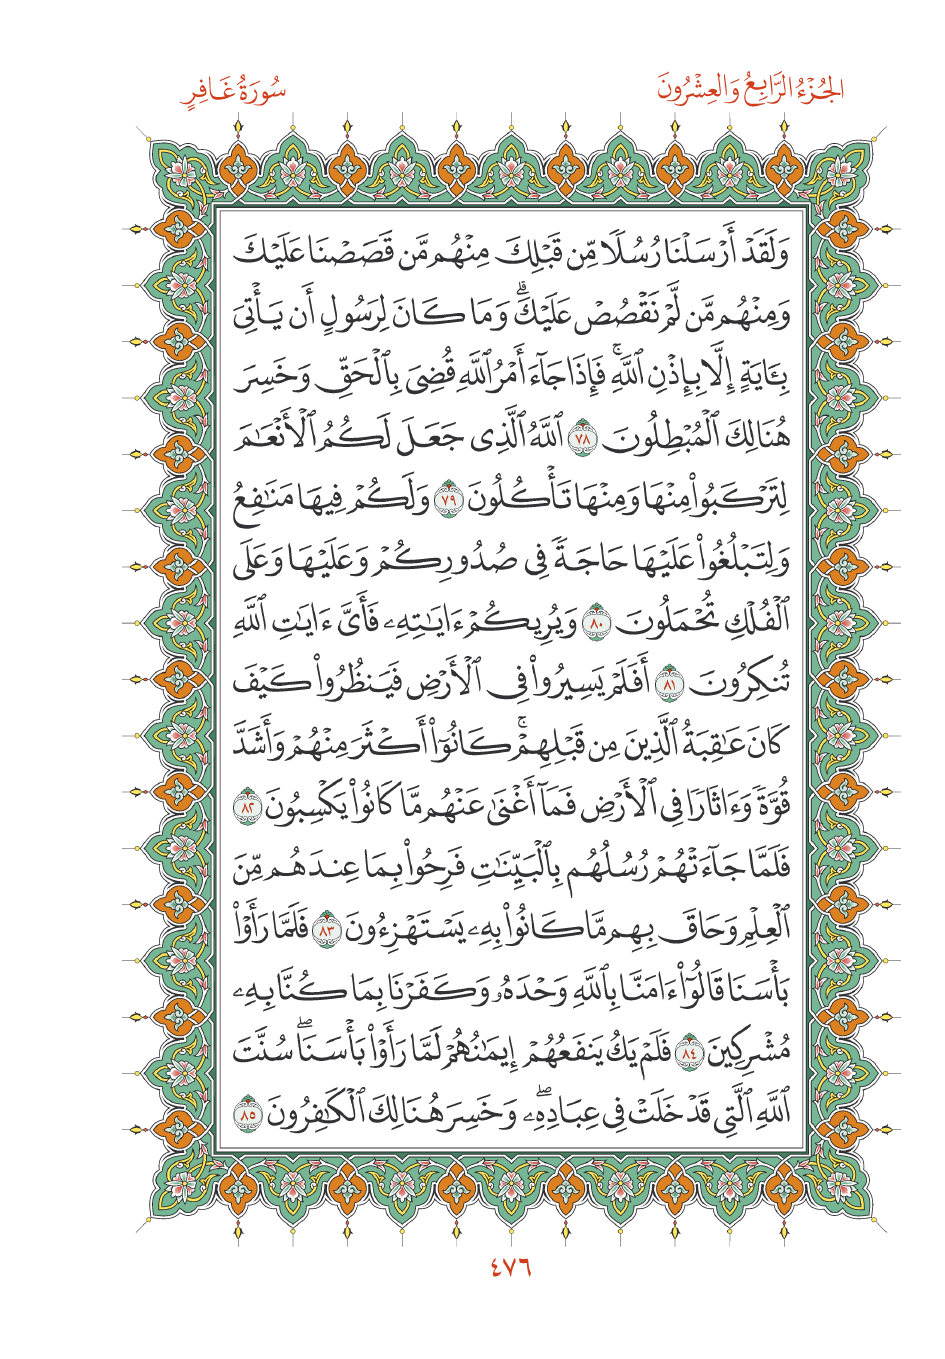 الجُزْءُ الرَّابِعُ وَالعِشْرُونَ
سُورَةُ غَافِرٍ
وَلَقَدْ أَرْسَلْنَا رُسُلًا مِّن قَبْلِكَ مِنْهُم مَّن قَصَصْنَا عَلَيْكَ
وَمِنْهُم مَّن لَّمْ نَقْصُصْ عَلَيْكَۗ وَمَا كَانَ لِرَسُولٍ أَن يَأْتِيَ
بِـَٔايَةٍ إِلَّا بِإِذْنِ ٱللَّهِۚ فَإِذَا جَآءَ أَمْرُ ٱللَّهِ قُضِيَ بِٱلْحَقِّ وَخَسِرَ
هُنَالِكَ ٱلْمُبْطِلُونَ ٧٨ ٱللَّهُ ٱلَّذِى جَعَلَ لَكُمُ ٱلْأَنْعَٰمَ
لِتَرْكَبُوا۟ مِنْهَا وَمِنْهَا تَأْكُلُونَ ٧٩ وَلَكُمْ فِيهَا مَنَٰفِعُ
وَلِتَبْلُغُوا۟ عَلَيْهَا حَاجَةً فِى صُدُورِكُمْ وَعَلَيْهَا وَعَلَى
ٱلْفُلْكِ تُحْمَلُونَ ٨٠ وَيُرِيكُمْ ءَايَٰتِهِۦ فَأَىَّ ءَايَٰتِ ٱللَّهِ
تُنكِرُونَ ٨١ أَفَلَمْ يَسِيرُوا۟ فِى ٱلْأَرْضِ فَيَنظُرُوا۟ كَيْفَ
كَانَ عَٰقِبَةُ ٱلَّذِينَ مِن قَبْلِهِمْۚ كَانُوٓا۟ أَكْثَرَ مِنْهُمْ وَأَشَدَّ
قُوَّةً وَءَاثَارًا فِى ٱلْأَرْضِ فَمَآ أَغْنَىٰ عَنْهُم مَّا كَانُوا۟ يَكْسِبُونَ ٨٢
فَلَمَّا جَآءَتْهُمْ رُسُلُهُم بِٱلْبَيِّنَٰتِ فَرِحُوا۟ بِمَا عِندَهُم مِّنَ
ٱلْعِلْمِ وَحَاقَ بِهِم مَّا كَانُوا۟ بِهِۦ يَسْتَهْزِءُونَ ٨٣ فَلَمَّا رَأَوْا۟
بَأْسَنَا قَالُوٓا۟ ءَامَنَّا بِٱللَّهِ وَحْدَهُۥ وَكَفَرْنَا بِمَا كُنَّا بِهِۦ
مُشْرِكِينَ ٨٤ فَلَمْ يَكُ يَنفَعُهُمْ إِيمَٰنُهُمْ لَمَّا رَأَوْا۟ بَأْسَنَاۖ سُنَّتَ
ٱللَّهِ ٱلَّتِى قَدْ خَلَتْ فِى عِبَادِهِۦۖ وَخَسِرَ هُنَالِكَ ٱلْكَٰفِرُونَ ٨٥
٤٧٦